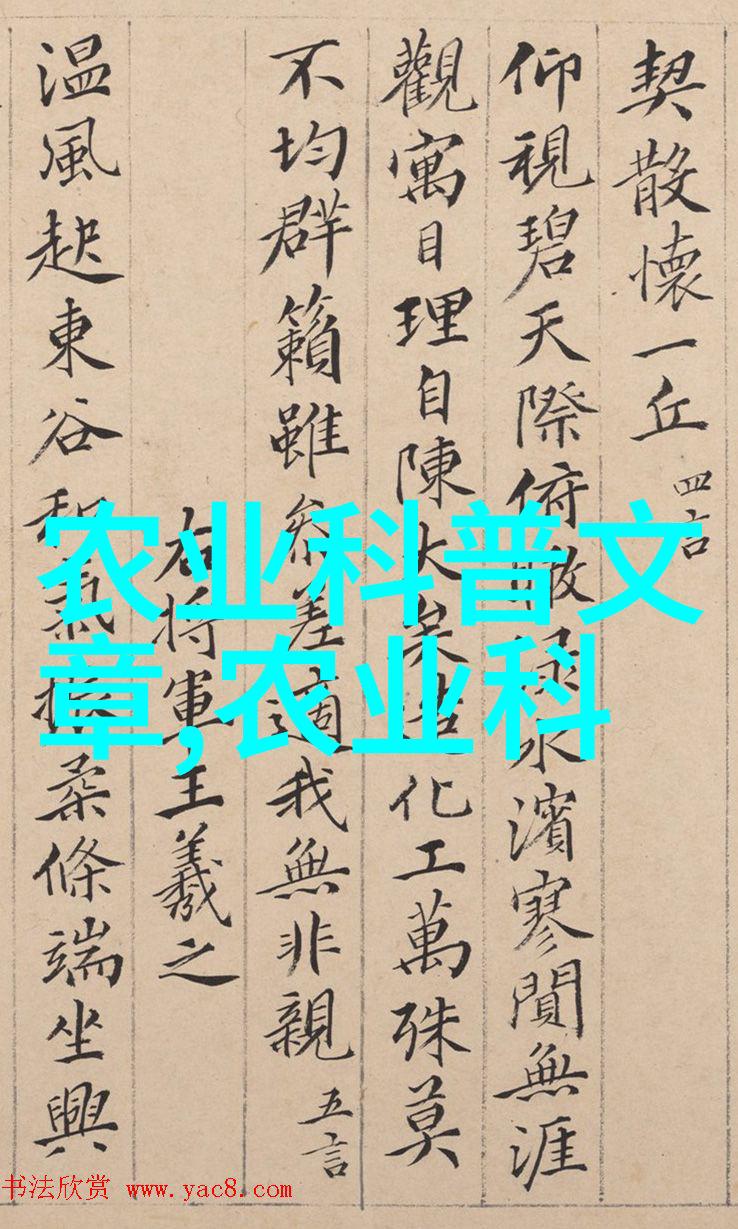 契散懷一丘 四言
仰視碧天際俯水濱寥閴無涯
觀寓目理自陳大矣造化工萬殊莫
不均群籟雖參差適我無非親 五言
右將軍王羲之
温風起東谷和氣振柔條端坐興
农业科普文
章,农业科
书法欣赏 www.yac8.com